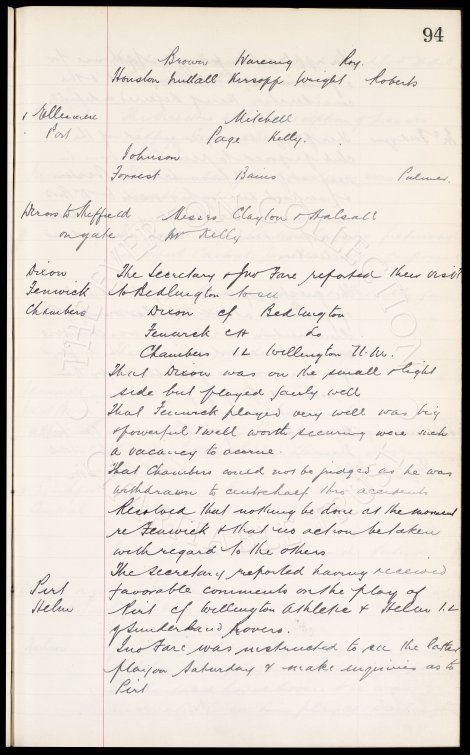 94
Brown Wareing Roy.
Houston Nuttall Kersopp Wright Roberts
Ellesmere Port
Mitchell
Page Kelly.
Johnson
Forrest Bains Palmer
Dircrs to Sheffield Messrs Clayton & Halsall
on gate Mr Kelly
Dixon The Secretary & Jno Fare reported their visit
Fenwick to Bedlington to see
Chambers Dixon cf Bedlington
Fenwick cH Do
Chambers I L Wellington U.M.
That Dixon was on the small & light
side but played fairly well
That Fenwick played very well was big
& powerful & well worth securing were such
a vacancy to accrue.
That Chambers could not be judged as he was
withdrawn to centrehalf thro accidents
Resolved that nothing be done at the moment
re Fenwick & that no action be taken
with regard to the others
The Secretary reported having received
Pirt favorable comments on the play of
Helm Pirt cf Wellington Athletic & Helm I.L
of Sunderland Rovers.
Jno Fare was instructed to see the latter
play on Saturday & make enquiries as to
Pirt